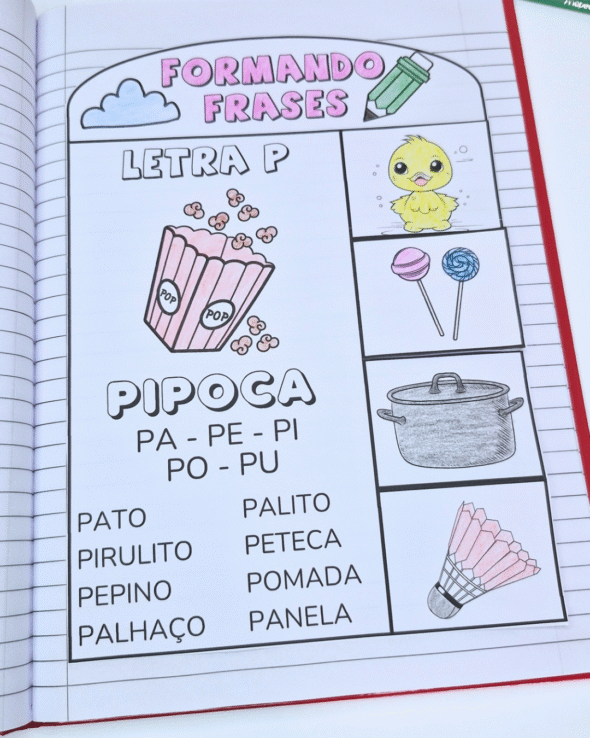 FORMANDO
FRASES
LETRA P
POP
POP
PIPOCA
PA - PE - PI
PO - PU
PATO
PIRULITO
PEPINO
PALHAÇO
PALITO
PETECA
POMADA
PANELA